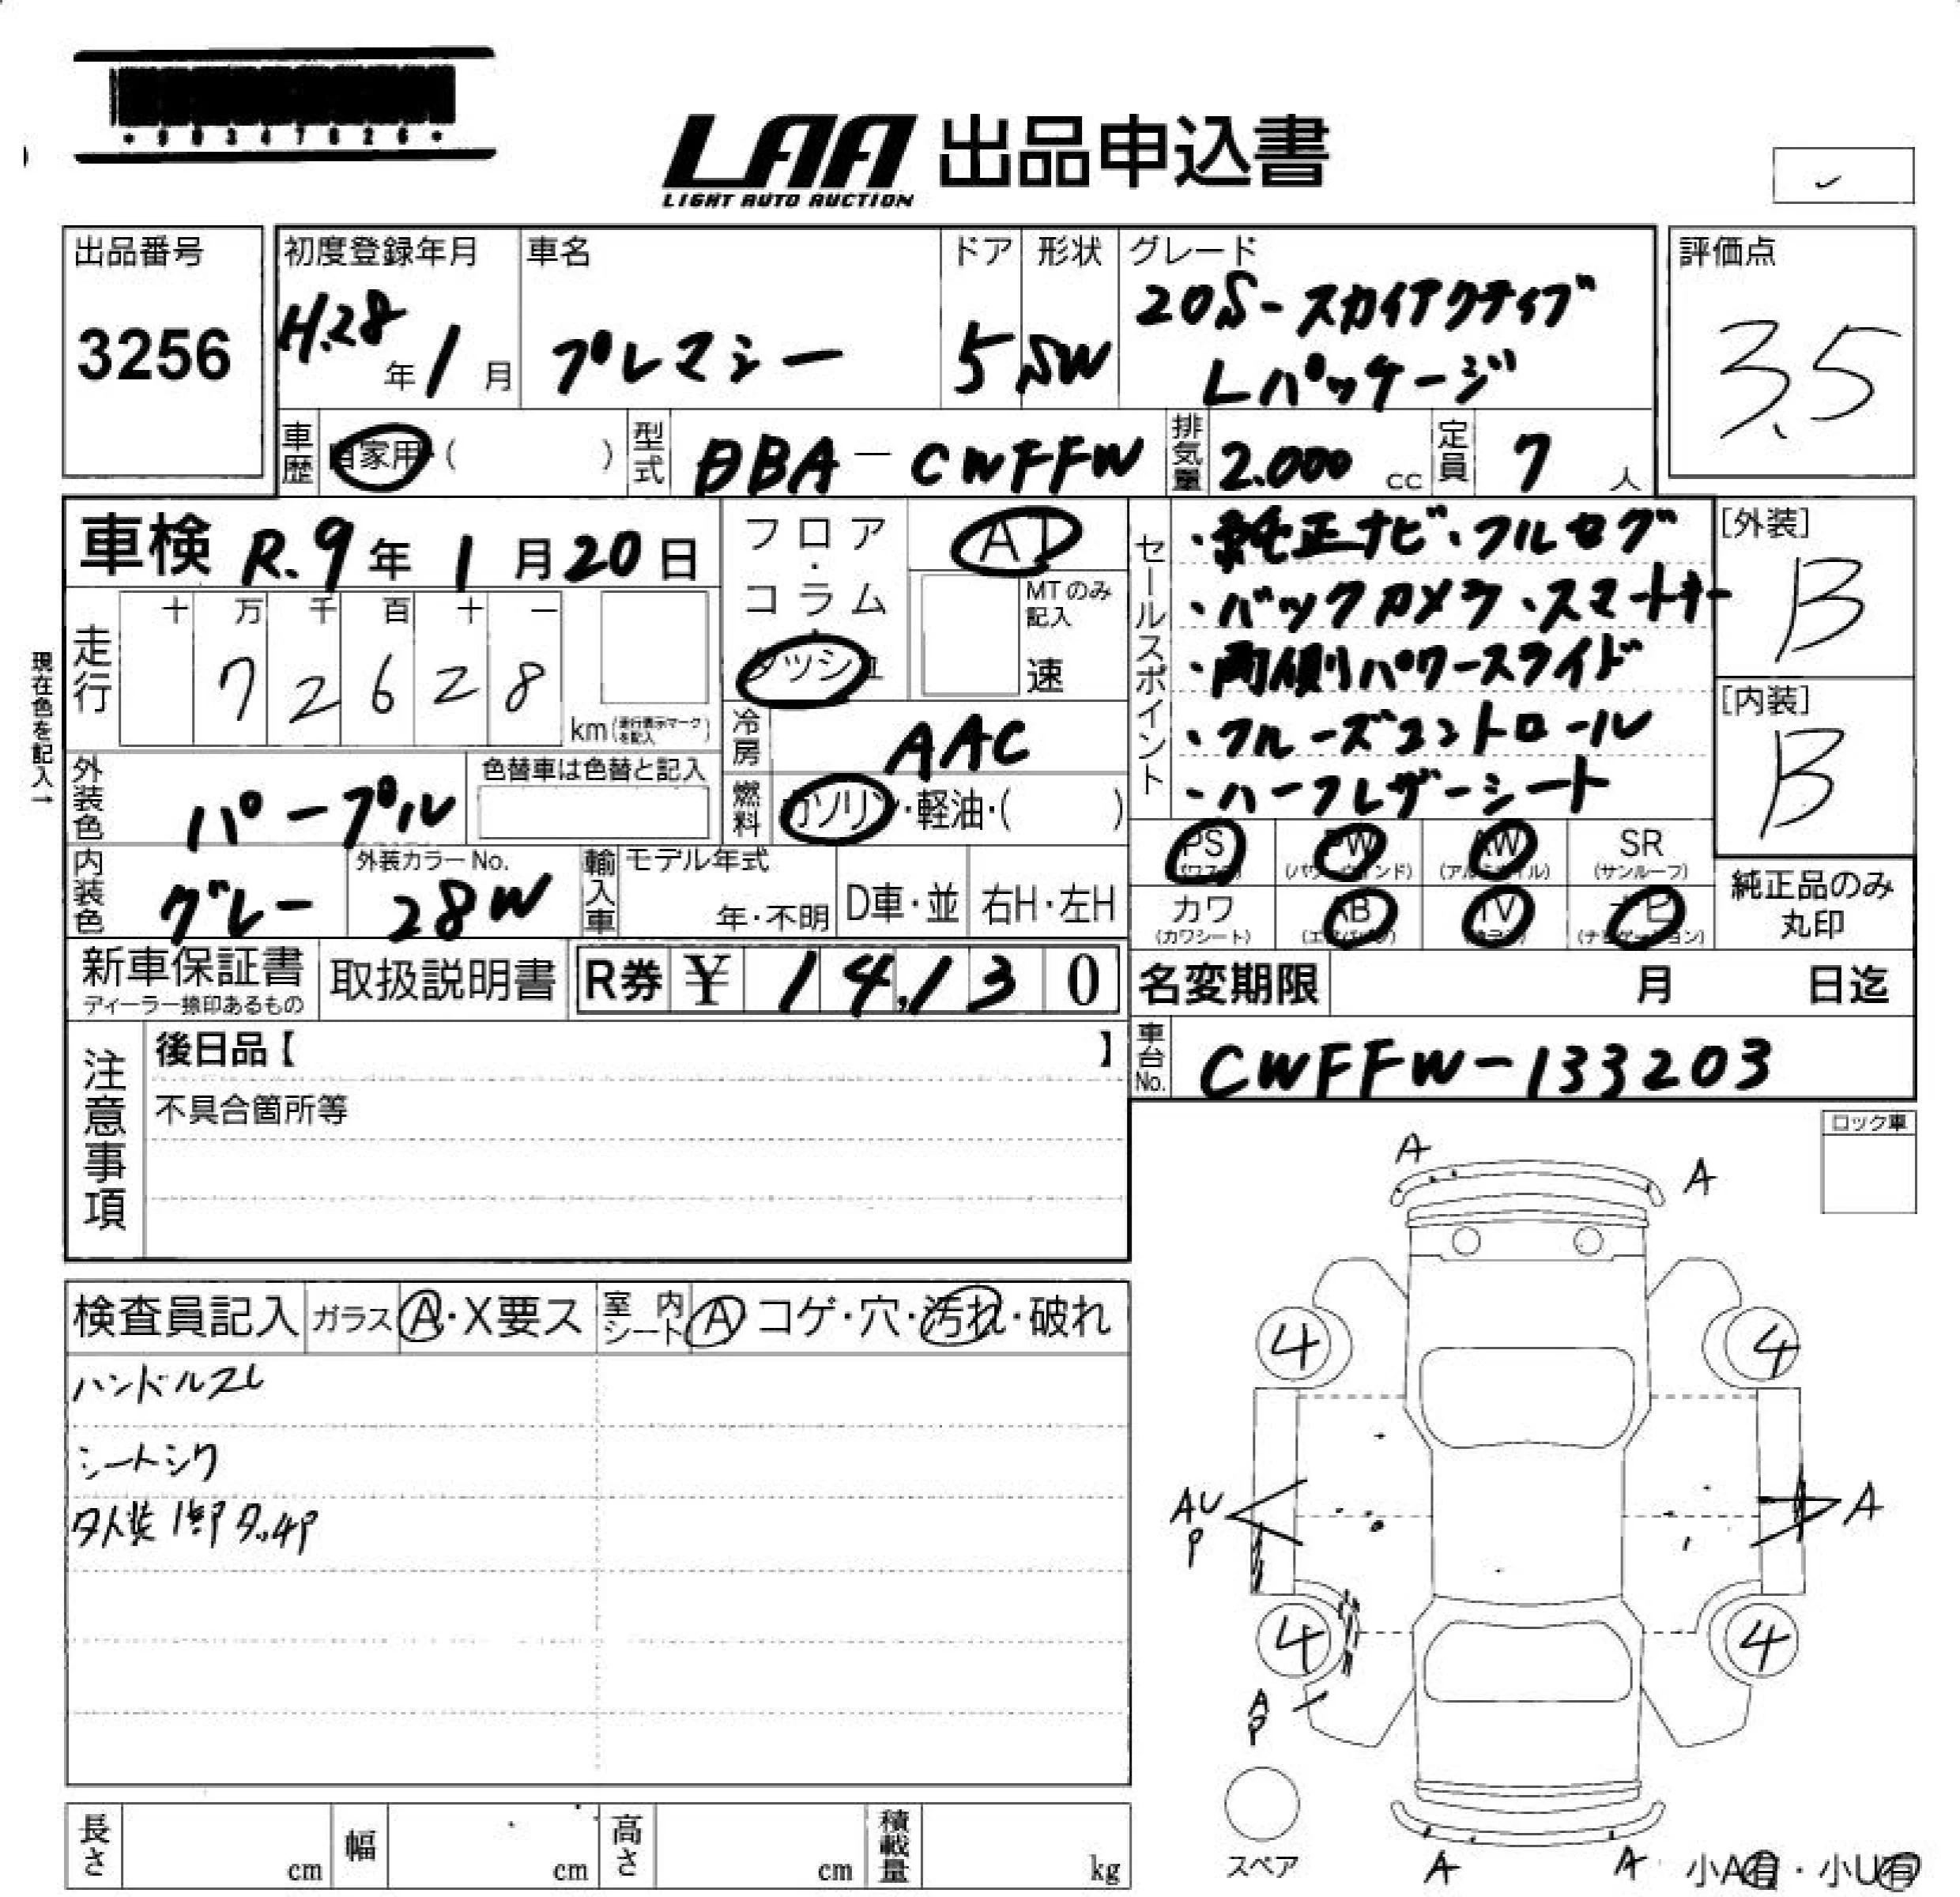 *90347626*
LAA 出品申込書
LIGHT AUTO AUCTION
出品番号
3256
初度登録年月
H.28年1月
車名
プレマシー
ドア
5
形状
SW
グレード
20S-スカイアクティブ
Lパッケージ
評価点
3.5
車歴
自家用・( )
型式
DBA-CWFFW
排気量
2.000cc
定員
7人
車検 R.9年1月20日
フロア・コラム・ダッシュ
AT
MTのみ記入
速
セールスポイント
・純正ナビ・フルセグ
・バックカメラ・スマートキー
・両側パワースライド
・クルーズコントロール
・ハーフレザーシート
[外装]
B
[内装]
B
現在色を記入→
走行
十 万 千 百 十 一
7 2 6 2 8
km(走行表示マークを記入)
冷房
AAC
燃料
ガソリン・軽油・( )
外装色
パープル
色替車は色替と記入
内装色
グレー
外装カラーNo.
28W
輸入車
モデル年式
年・不明
D車・並
右H・左H
PS
(パワステ)
PW
(パワーウインド)
AW
(アルミホイル)
SR
(サンルーフ)
カワ
(カワシート)
AB
(エアバッグ)
TV
(テレビ)
ナビ
(ナビゲーション)
純正品のみ
丸印
新車保証書
ディーラー捺印あるもの
取扱説明書
R券 ¥ 14,130
名変期限 月 日迄
注意事項
後日品【 】
不具合箇所等
車台No.
CWFFW-133203
ロック車
検査員記入
ガラス
A・X要ス
室内シート
A コゲ・穴・汚れ・破れ
ハンドルスレ
シートシワ
外装1部タッチP
A
A
4
4
AU
P
A
4
4
A
P
スペア
A
A
小A有・小U有
長さ cm
幅 cm
高さ cm
積載量 kg